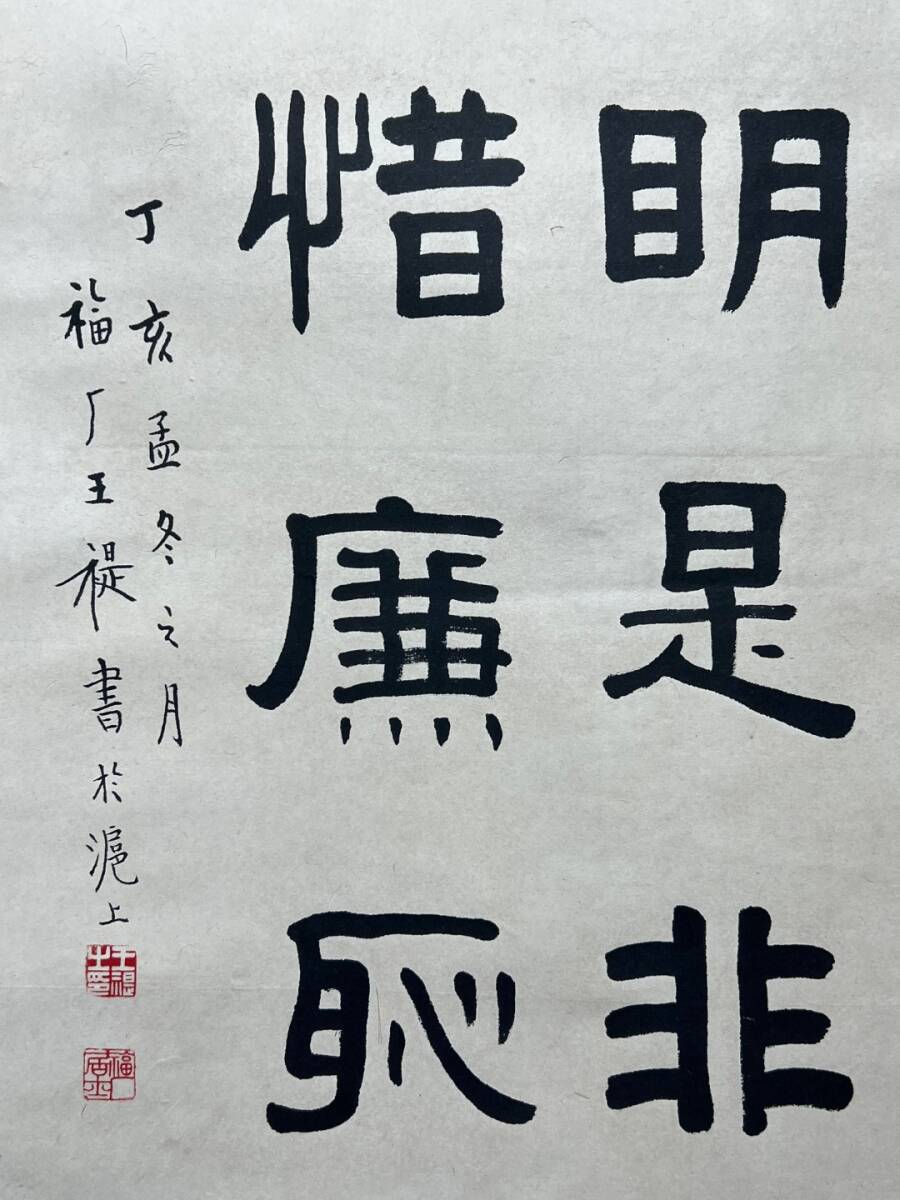 明是非
惜廉恥
丁亥孟冬之月
福厂王禔書於滬上
王禔之印
福厂